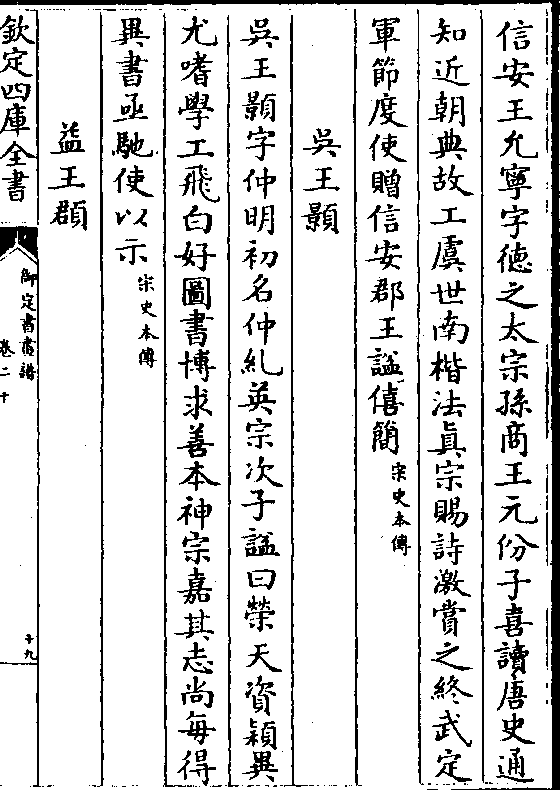 信安王允寧字徳之太宗孫商王元份子喜讀唐史通
知近朝典故工虞世南楷法真宗賜詩激賞之終武定
軍節度使贈信安郡王諡僖簡宋史本傳
吳王顥
吳王顥字仲明初名仲糺英宗次子諡曰榮天資穎異
尤嗜學工飛白好圖書博求善本神宗嘉其志尚毎得
異書亟馳使以示宋史本傳
益王頵
欽定四庫全書
御定書畫譜
卷二十
十九